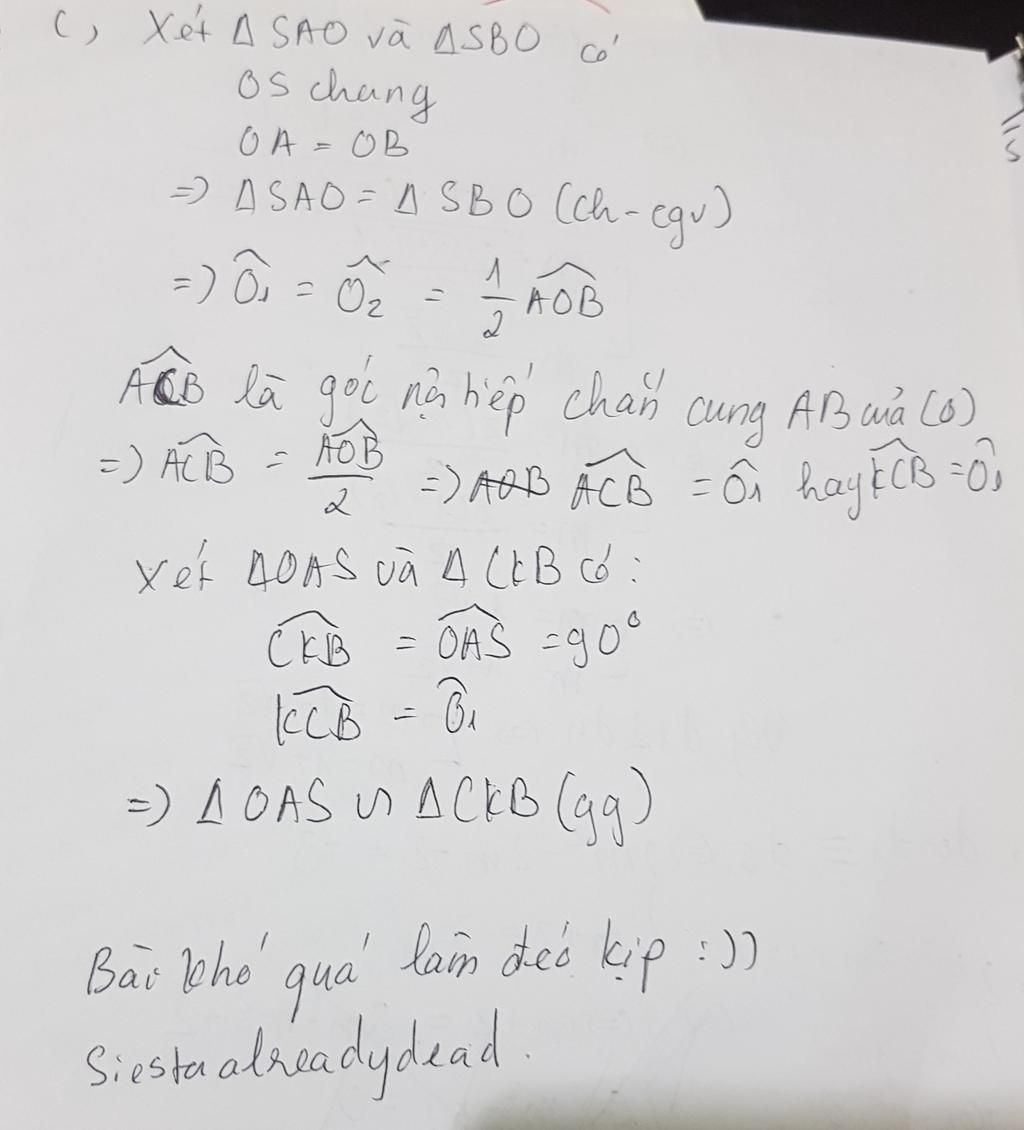 c, Xét ΔSAO và ΔSBO có
OS chung
OA = OB
=> ΔSAO = ΔSBO (ch-cgv)
=> Ô₁ = Ô₂ = 1/2 AOB
ACB là góc nội tiếp chắn cung AB của (O)
=> ACB = AOB/2 => AOB ACB = Ô₁ hay KCB = Ô₁
Xét ΔOAS và ΔCKB có:
CKB = OAS = 90°
KCB = Ô₁
=> ΔOAS ᔕ ΔCKB (gg)
Bài khó quá làm đéo kịp :))
Siestaalreadydead.